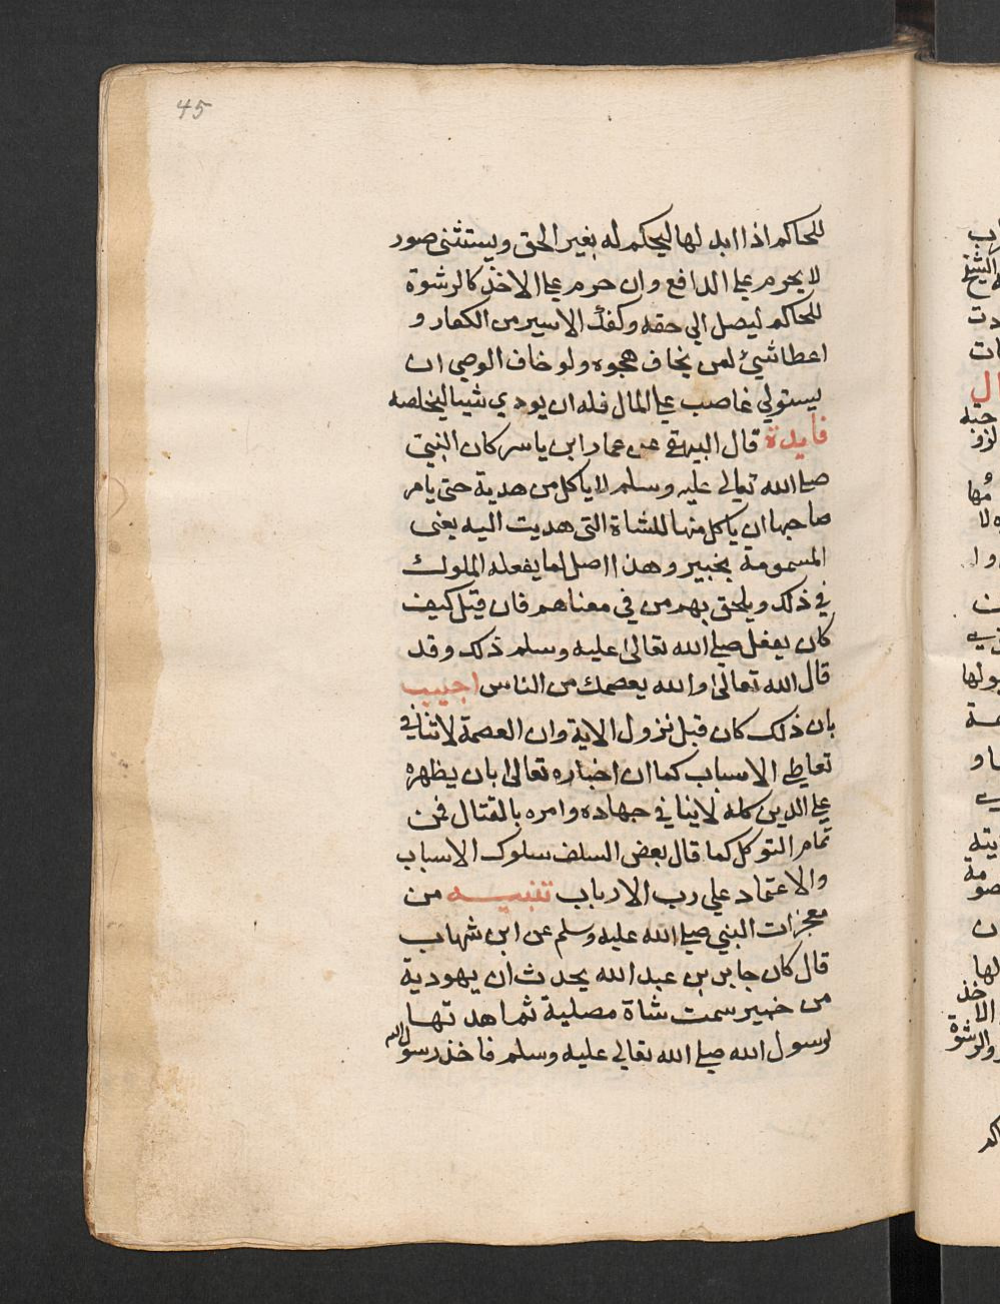 45
للحاكم اذا ابد لها ليحكم له بغير الحق ويستثنى صور
لا يحرم على الدافع وان حرم على الاخذ كالرشوة
للحاكم ليصل الي حقه وكفك الاسير من الكفار و
اعطا شيئ لمن يخاف هجوه ولو خاف الوصي ان
يستولي غاصب على المال فله ان يودي شيا ليخلصه
فايدة قال البيهقي عن عمار ابن ياسر كان النبي
صلى الله تعالى عليه وسلم لا ياكل من هدية حتى يامر
صاحبها ان ياكل منها للشاة التى هديت اليه يعنى
المسمومة بخيبر وهذا اصل لما يفعله الملوك
في ذلك ويلحق بهم من في معناهم فان قيل كيف
كان يفعل صلى الله تعالى عليه وسلم ذلك وقد
قال الله تعالى والله يعصمك من الناس اجيب
بان ذلك كان قبل نزول الاية وان العصمة لا تنافي
تعاطي الاسباب كما ان اخباره تعالى بان يظهره
على الدين كله لا ينافي جهاده وامره بالقتال فمن
تمام التوكل كما قال بعض السلف سلوك الاسباب
والاعتماد علي رب الارباب تنبيه من
معجزات النبي صلى الله عليه وسلم عن ابن شهاب
قال كان جابر بن عبد الله يحدث ان يهودية
من خيبر سمت شاة مصلية ثم اهدتها
لرسول الله صلى الله تعالى عليه وسلم فاخذ رسول الله